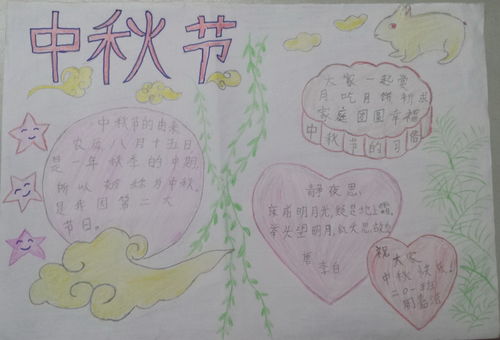 中秋节
中秋节的由来
农历八月十五日
是一年秋季的中期,
所以被称为中秋。
是我国第二大
节日。
大家一起赏
月,吃月饼祈求
家庭团圆幸福
中秋节的习俗
静夜思
床前明月光,疑是地上霜。
举头望明月,低头思故乡
唐
李白
祝大家
中秋快乐!
二0一班